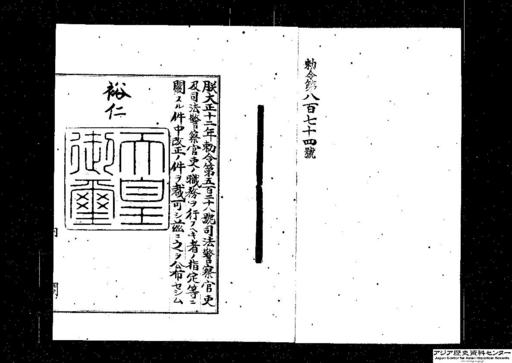 勅令第八百七十四號
朕大正十二年勅令第五百二十八號司法警察官吏
及司法警察官吏ノ職務ヲ行フヘキ者ノ指定等ニ
關スル件中改正ノ件ヲ裁可シ茲ニ之ヲ公布セシム
裕仁
天皇
御璽
アジア歴史資料センター
Japan Center for Asian Historical Records